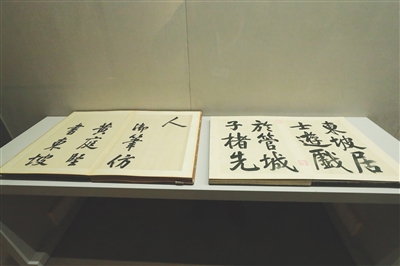 東坡居
士遊戲
於管城
子楮先
人
御筆仿
黃庭堅
書東坡